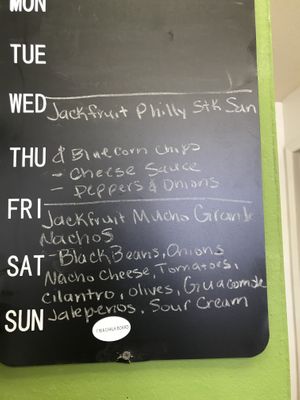 MON
TUE
WED Jackfruit Philly Stk San
THU & Blue Corn Chips
- Cheese Sauce
- Peppers & Onions
FRI Jackfruit Mucho Grande
Nachos
SAT - Black Beans, Onions
Nacho Cheese, Tomatoes,
Cilantro, olives, Guacamole
SUN Jalepenos, Sour Cream